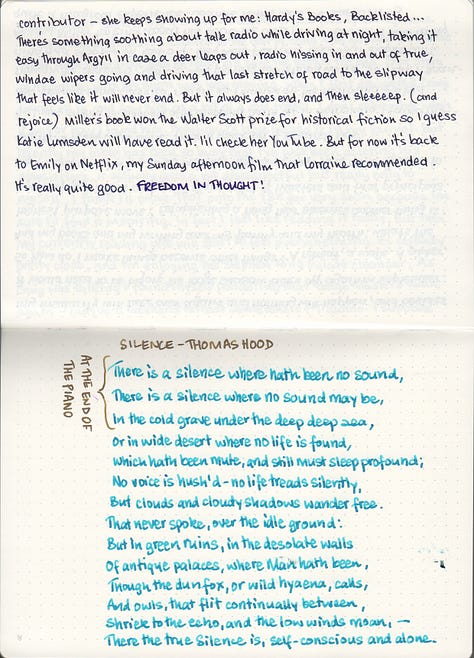 contributor - she keeps showing up for me: Hardy's Books, Backlisted...
There's something soothing about talk radio while driving at night, taking it
easy through Argyll in case a deer leaps out, radio hissing in and out of true,
windae wipers going and driving that last stretch of road to the slipway
that feels like it will never end. But it always does end, and then sleeeeep. (and
rejoice) Miller's book won the Walter Scott prize for historical fiction so I guess
Katie Lumsden will have read it. I'll check her YouTube. But for now it's back
to Emily on Netflix, my Sunday afternoon film that Lorraine recommended.
It's really quite good. FREEDOM IN THOUGHT!
SILENCE - THOMAS HOOD
AT THE END OF
THE PIANO
There is a silence where hath been no sound,
There is a silence where no sound may be,
In the cold grave under the deep deep sea,
Or in wide desert where no life is found,
Which hath been mute, and still must sleep profound;
No voice is hush'd - no life treads silently,
But clouds and cloudy shadows wander free.
That never spoke, over the idle ground:
But in green ruins, in the desolate walls
Of antique palaces, where Man hath been,
Though the dun fox, or wild hyaena, calls,
And owls, that flit continually between,
Shriek to the echo, and the low winds moan, —
There the true Silence is, self-conscious and alone.